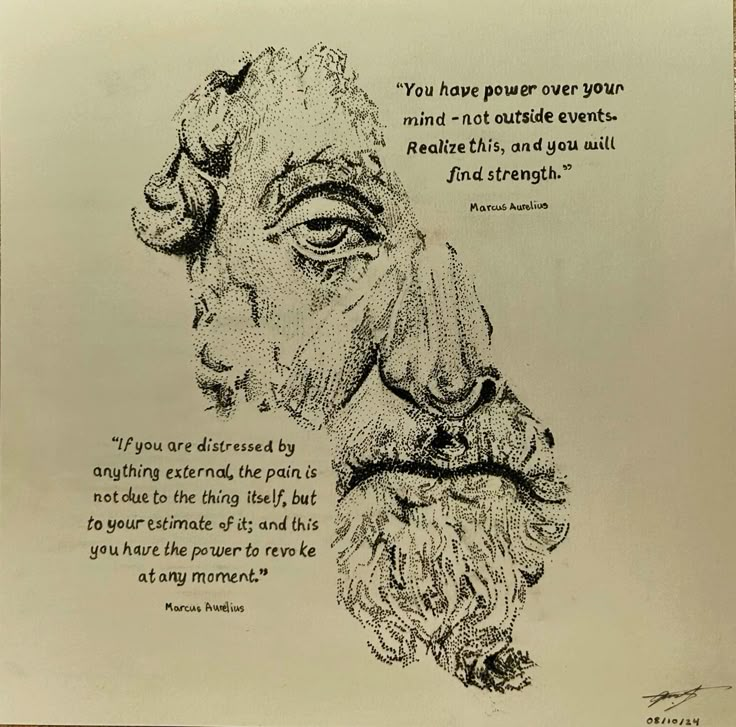 “You have power over your
mind - not outside events.
Realize this, and you will
find strength.”
Marcus Aurelius
“If you are distressed by
anything external, the pain is
not due to the thing itself, but
to your estimate of it; and this
you have the power to revoke
at any moment.”
Marcus Aurelius
08/10/24